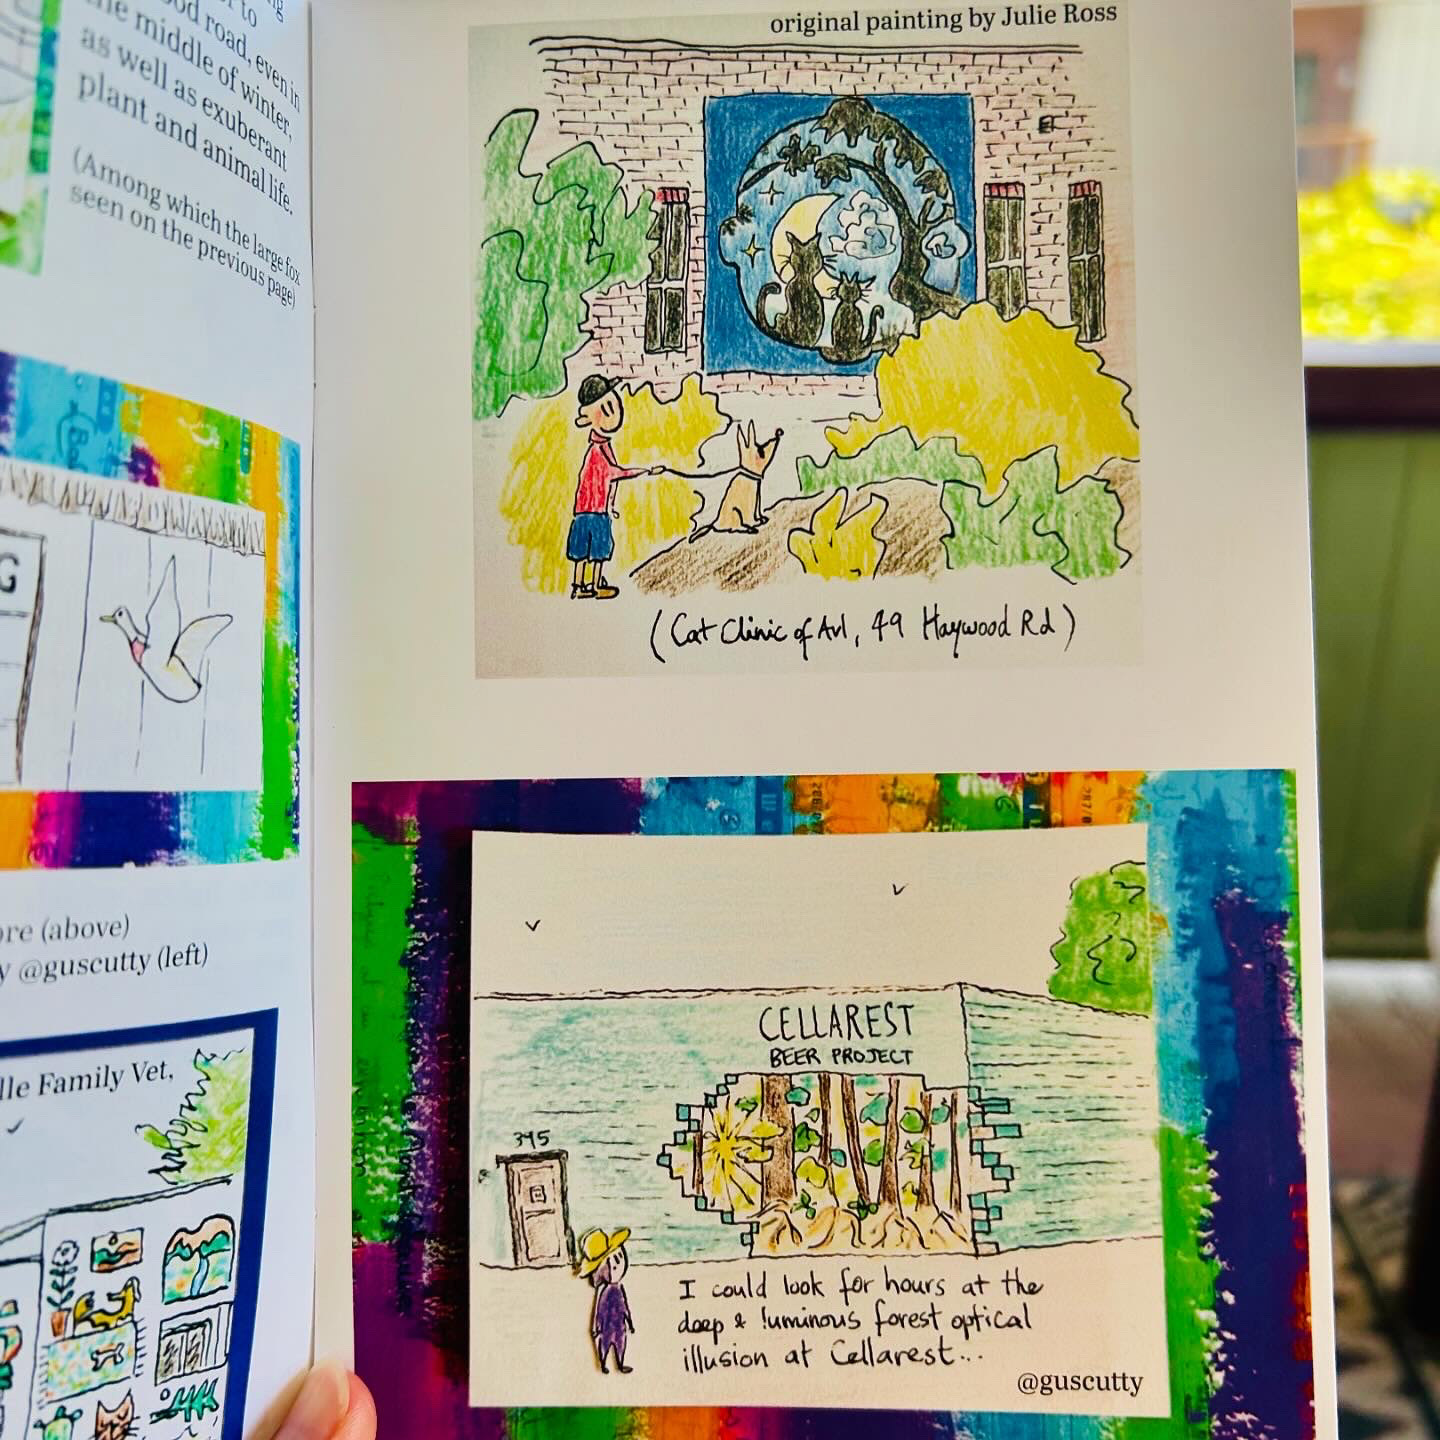 to
road, even in
the middle of winter,
as well as exuberant
plant and animal life.
(Among which the large fox
seen on the previous page)
G
(above)
@guscutty (left)
Family Vet,
original painting by Julie Ross
(Cat Clinic of Avl, 49 Haywood Rd)
CELLAREST
BEER PROJECT
345
I could look for hours at the
deep & luminous forest optical
illusion at Cellarest...
@guscutty